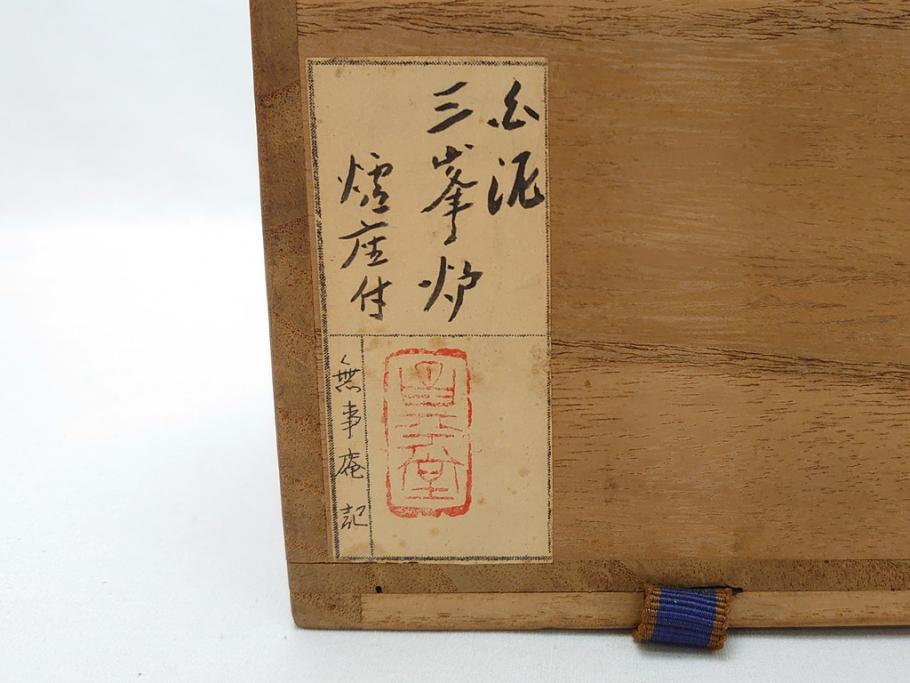 白泥
三峯炉
爐座付
無事庵 記